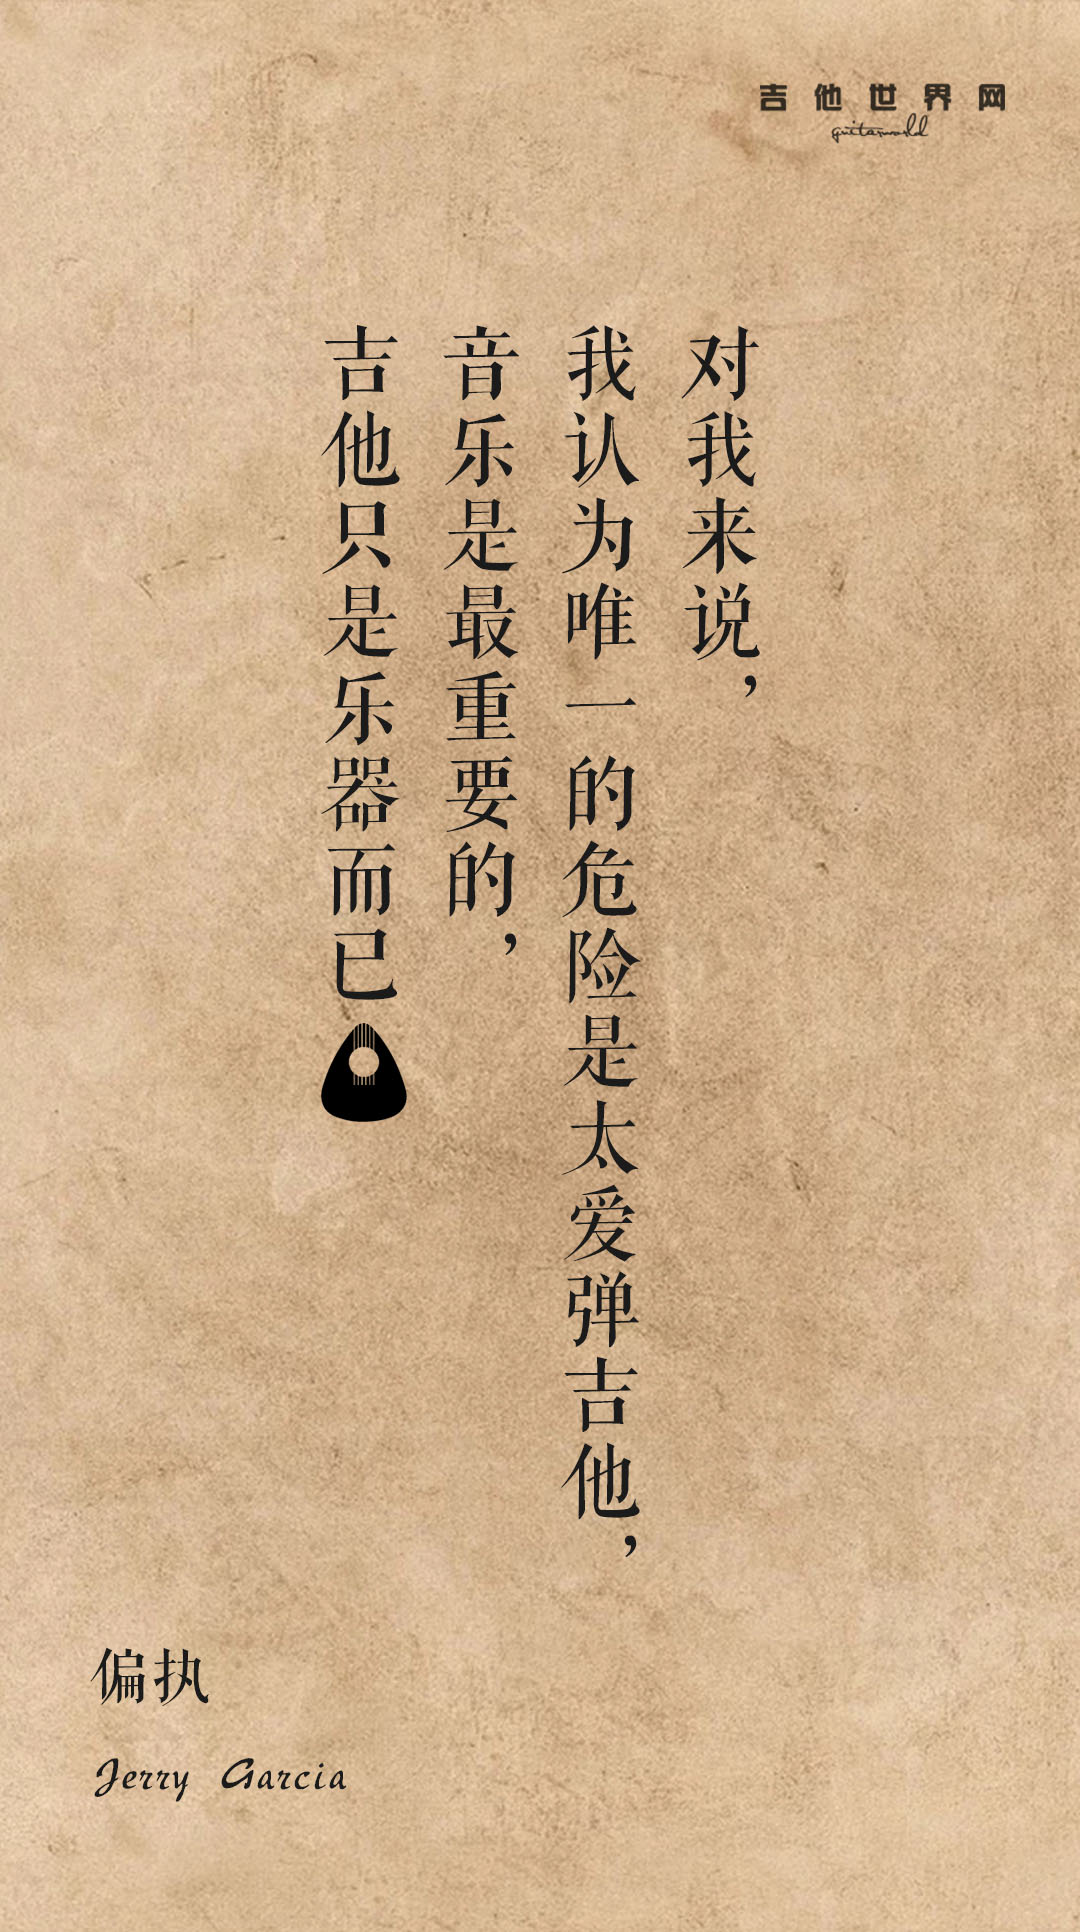 吉他世界网
guitarworld
对我来说，
我认为唯一的危险是太爱弹吉他，
音乐是最重要的，
吉他只是乐器而已
偏执
Jerry Garcia